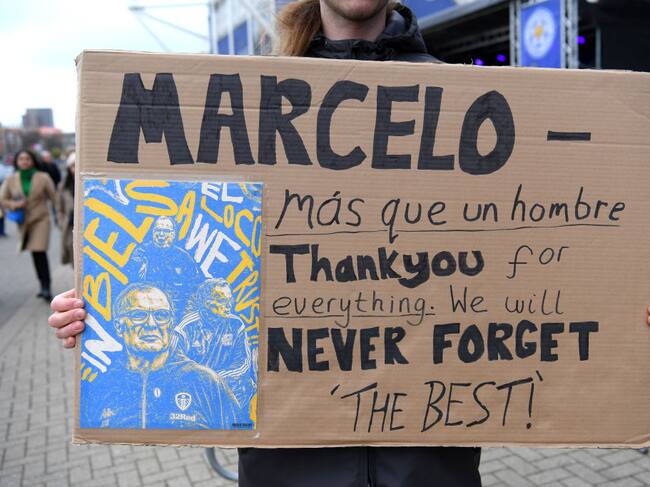 MARCELO –
Más que un hombre
Thankyou for
everything. We will
NEVER FORGET
'THE BEST!'
IN BIELSA WE TRUST
EL LOCO
32Red